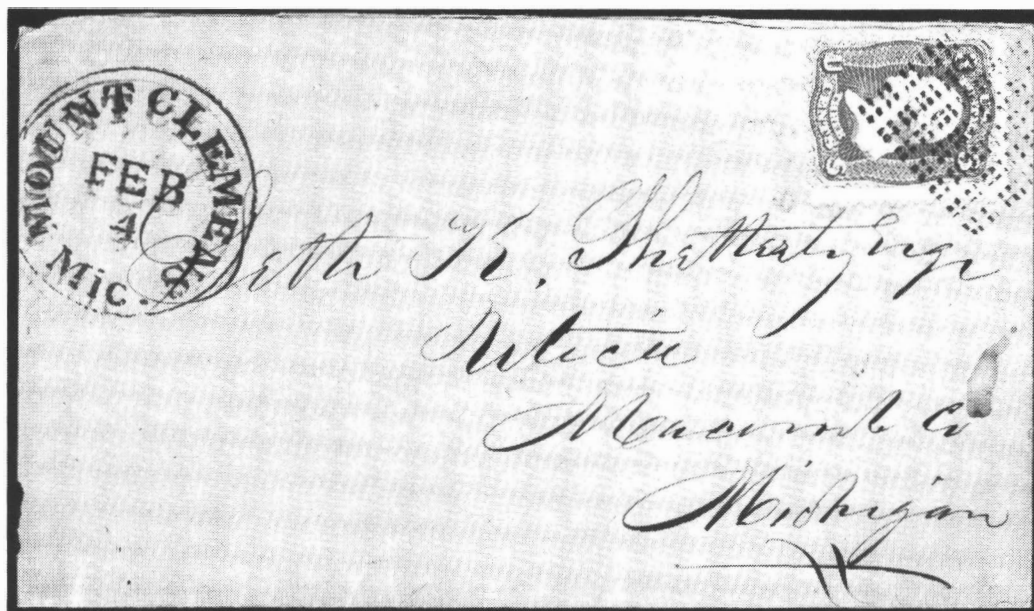 MOUNT CLEMENS
FEB
4
MIC.
Seth K. Shetterly Esqr
Utica
Macomb Co
Michigan